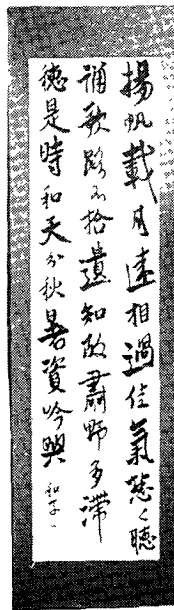 揚帆載月遠相過佳氣葱々聴
誦歌路不拾遺知政肅野多滞
穂是時和天分秋暑資吟興 和子